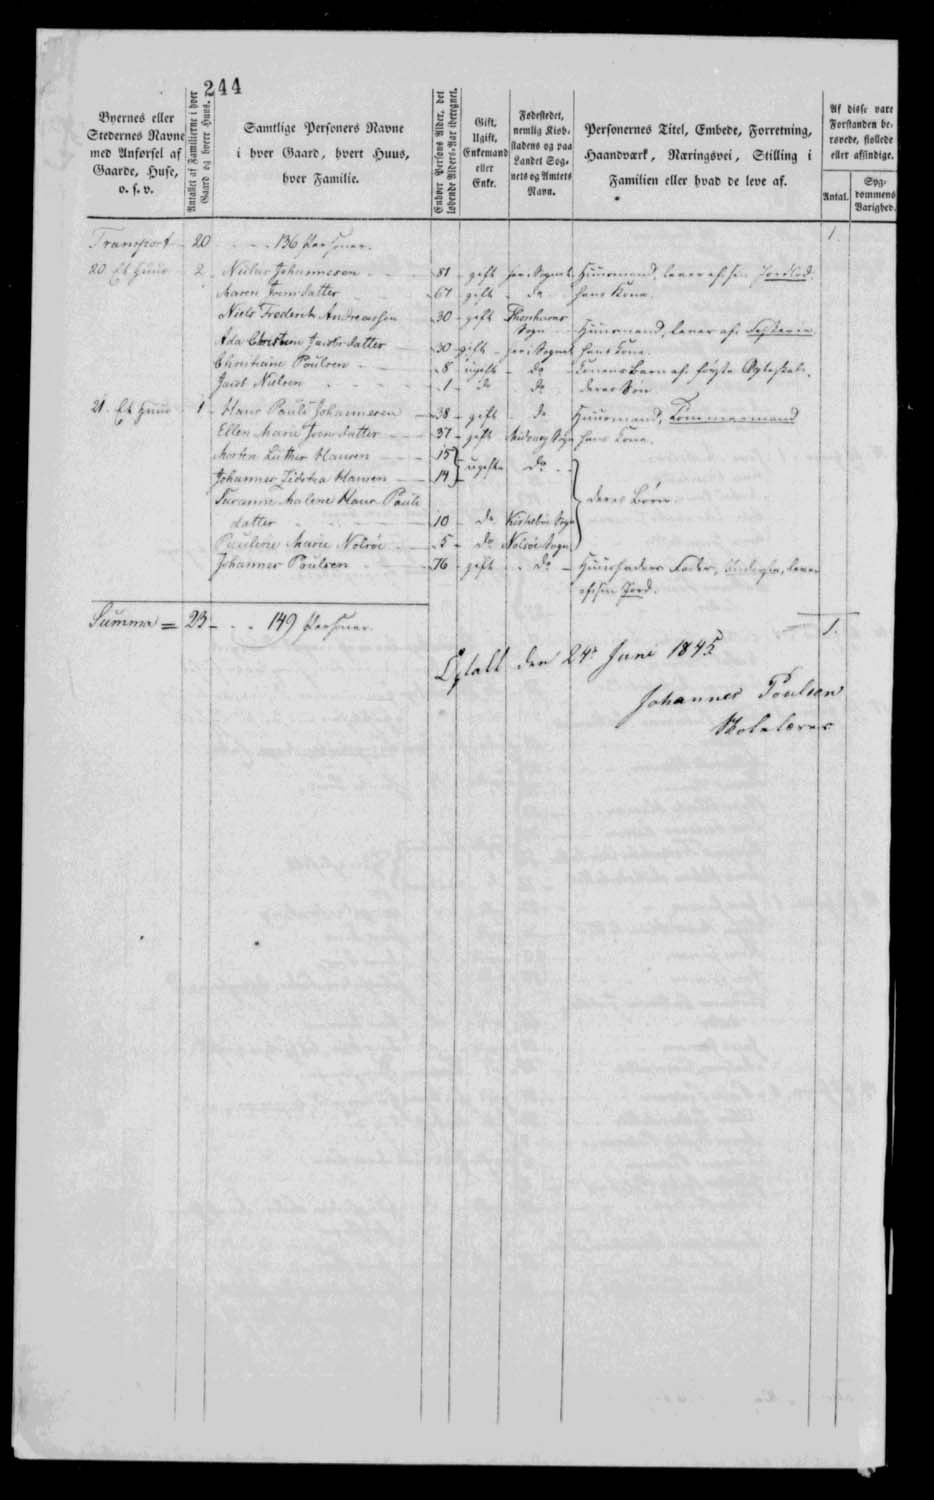 244
Byernes eller Stedernes Navne med Anførsel af Gaarde, Huse, o. s. v.
Antallet af Familierne i hver Gaard og hvert Huus.
Samtlige Personers Navne i hver Gaard, hvert Huus, hver Familie.
Enhver Persons Alder, det løbende Alders-Aar iberegnet.
Gift, Ugift, Enkemand eller Enke.
Fødestedet, nemlig Kiøbstadens og paa Landet Sognets og Amtets Navn.
Personernes Titel, Embede, Forretning, Haandværk, Næringsvei, Stilling i Familien eller hvad de leve af.
Af disse vare Forstanden berøvede, fiollede eller afsindige.
Antal.
Sygdommens Varighed.
Transport 20 136 Personer. 1.
20 Et Huus 2 Niclas Johannesen 81 gift her i Sognet Huusmand, lever af sin Jordlod
Maren Joensdatter 67 gift do hans Kone
Niels Frederik Andreassen 30 gift Thorshavns
Sogn Huusmand, lever af Fiskerie
Ada Christine Jacobsdatter 30 gift her i Sognet hans Kone
Christiane Poulsen 8 ugift do Konens Barn af første Ægteskab.
Jacob Nielsen 1 do do deres Søn
21. Et Huus 1 Hans Pauli Johannesen 38 gift do Huusmand, Tømmermand
Ellen Marie Joensdatter 37 gift Andenes Sogn hans Kone.
Morten Luther Hansen 15
ugifte Do
Johannes Hansen 14
Susanne Malene Hans Pauli deres Børn
datter 10 do Kirkebøe Sogn
Pauline Marie Nolsøe 5 do Nolsøe Sogn
Johannes Poulsen 76 gift do Huusfaders Fader, lever
af sin Jord.
Summa = 23 149 Personer. 1.
den 24de Juni 1845
Johannes Poulsen
Skolelærer